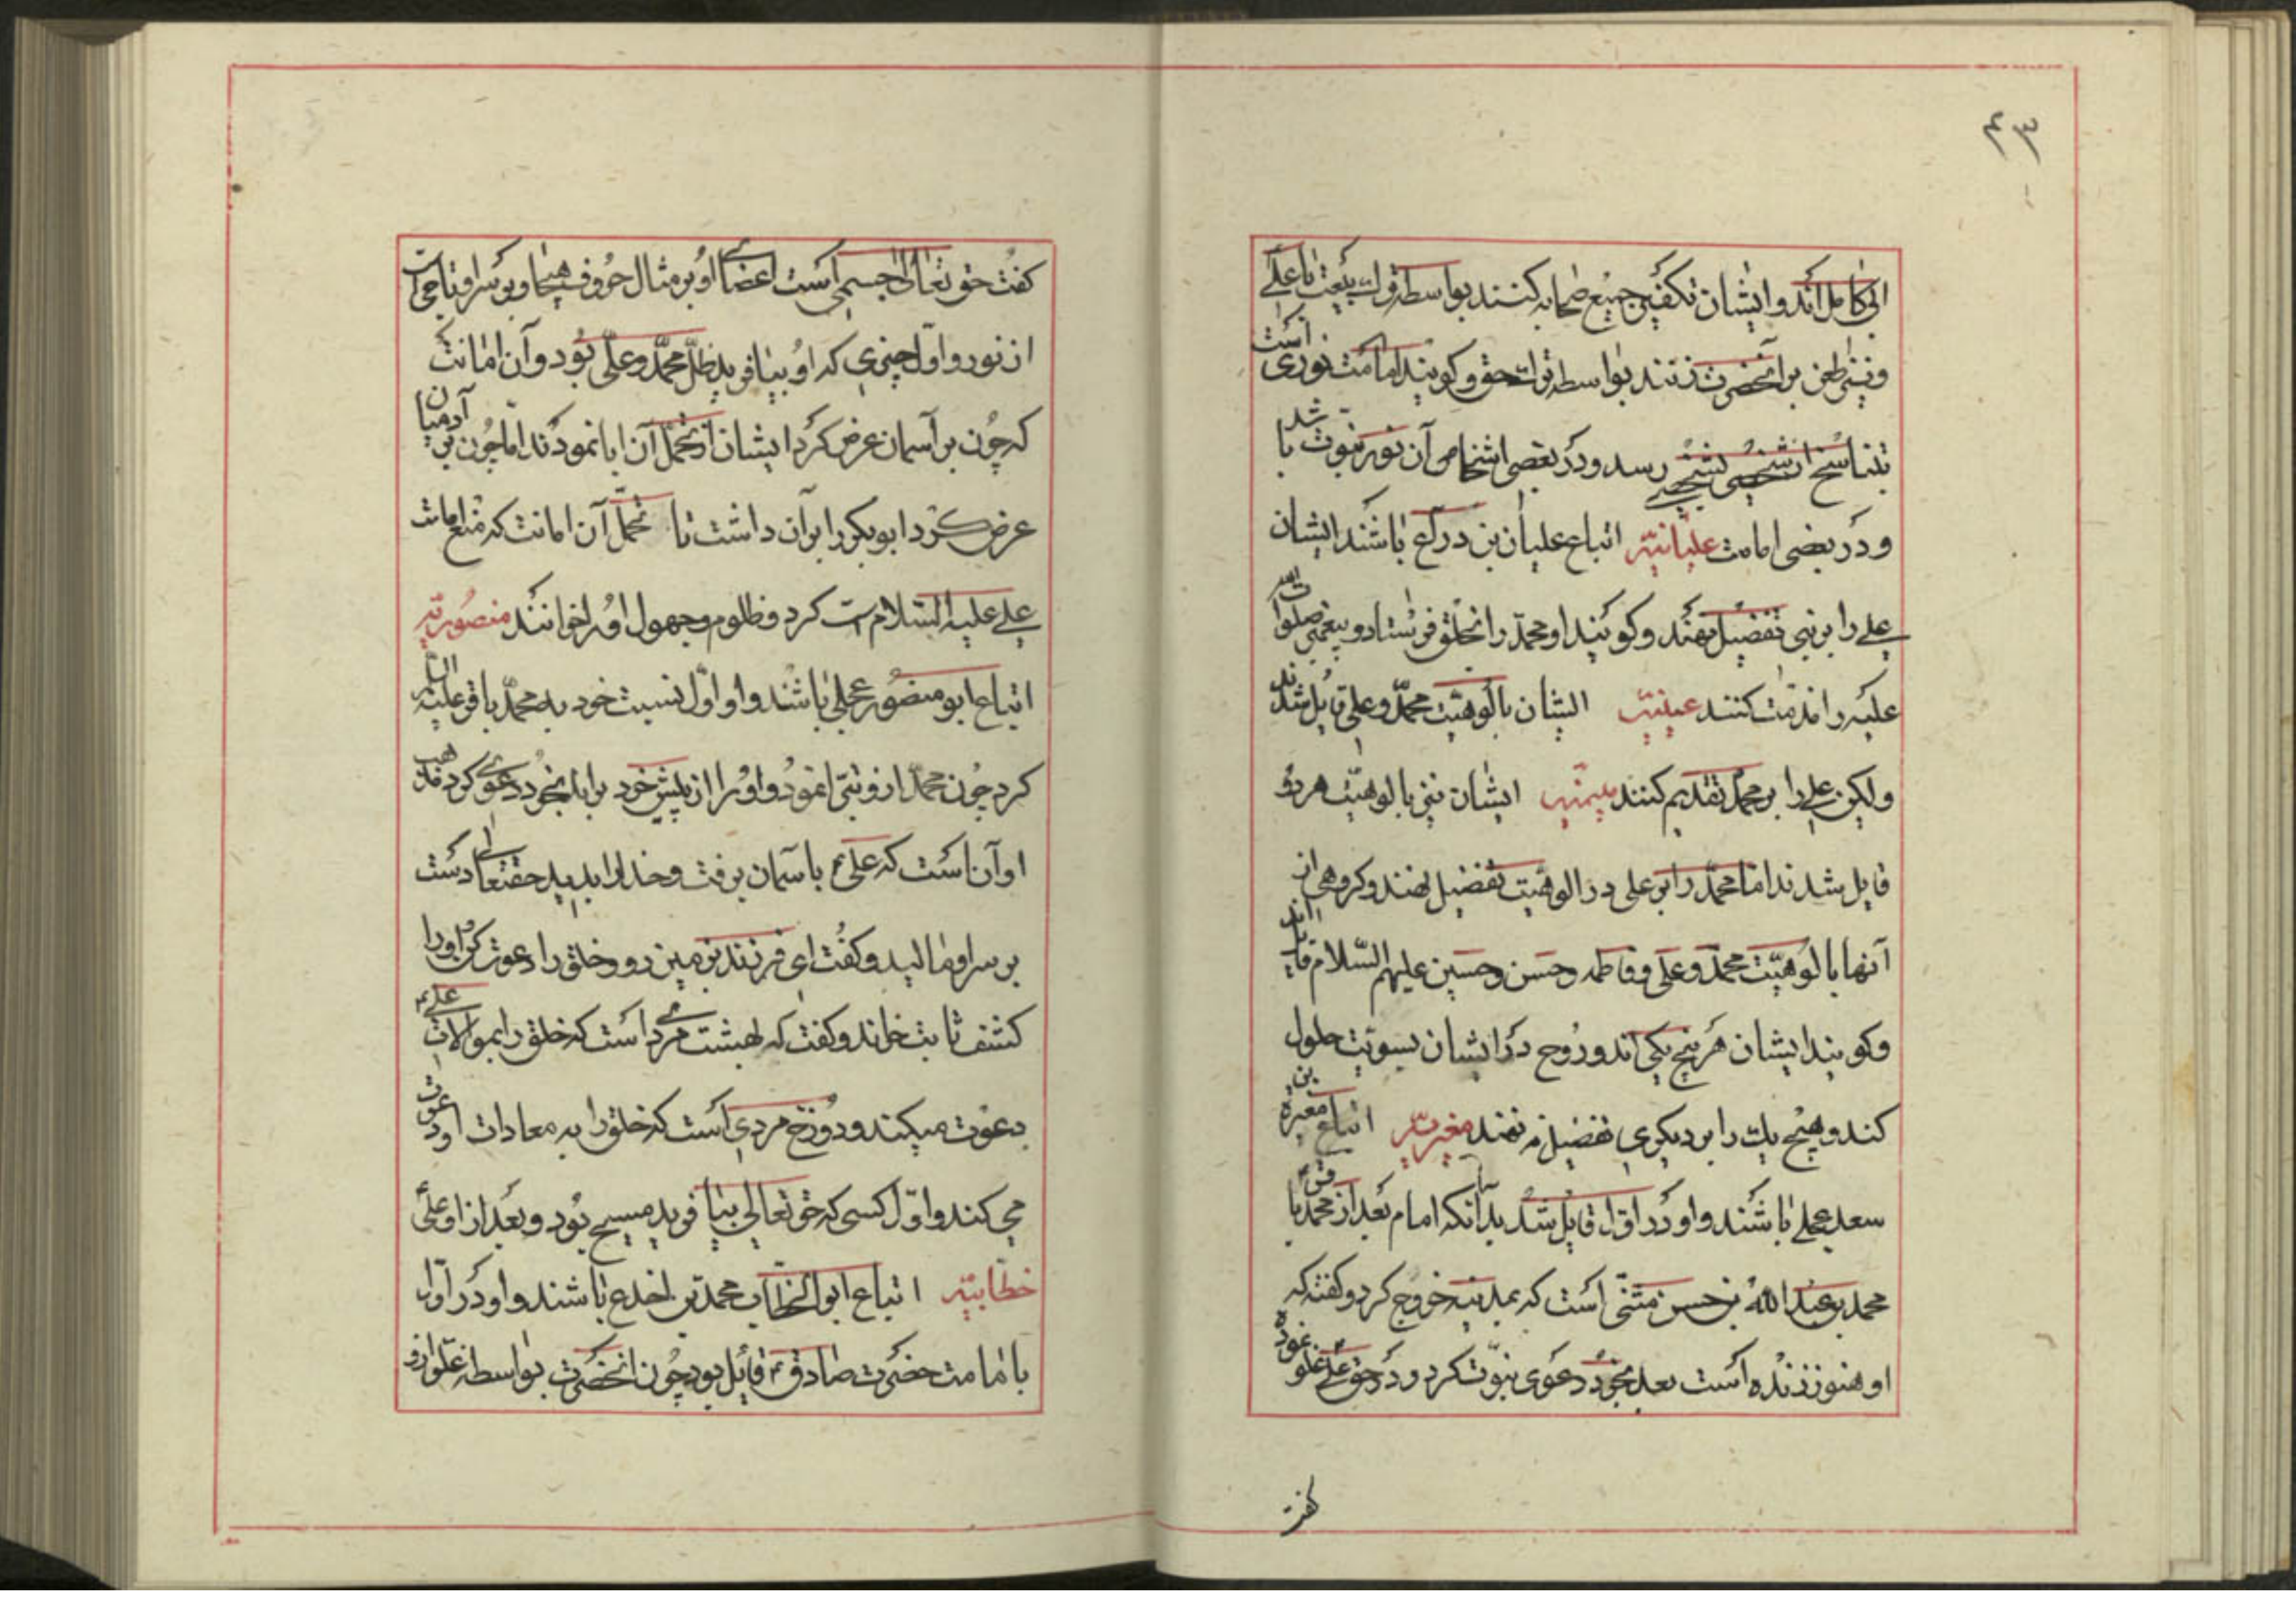 ابی کامل اند و ایشان تکفیر جمیع صحابه کنند بواسطه ترك بیعت با علی
و نیز طعن بر آنحضرت زنند بواسطه ترك حق و کویند امامت نوری است
بتناسخ از شخصی بشخصی رسد و در بعضی اشخاص آن نور نبوت باشد
و در بعضی امامت علیانیه اتباع علیان بن دراع باشند ایشان
علی را بر نبی تفضیل نهند و کویند او محمد را بخلق فرستاد و پیغمبر صلوات الله
علیه را مذمت کنند عینیه ایشان بالوهیت محمد و علی قایل شدند
ولیکن علی را بر محمد تقدیم کنند میمیه ایشان نیز بالوهیت هر دو
قایل شدند اما محمد را بر علی در الوهیت تفضیل نهند و کروهی از
آنها بالوهیت محمد و علی و فاطمه و حسن و حسین علیهم السلام قایل اند
و کویند ایشان هر پنج یکی اند و روح در ایشان بسویت حلول
کند و هیچ یك را بر دیکری تفضیل نه نهند مغیریه اتباع مغیره بن
سعد عجلی باشند و او در اول قایل شد بدآنکه امام بعد از محمد باقر
محمد بن عبد الله بن حسن مثنی است که بمدینه خروج کرد و کفته که
او هنوز زنده است بعد بخود دعوی نبوت کرد و در حق علی غلو نموده
کفت
کفت حق تعالی جسمی است اعضای او بر مثال حروف هجا و بر سر او تاجی است
از نور و اول چیزی که او بیافرید ظل محمد و علی بود و آن امانت که
که چون بر آسمان عرض کرد ایشان از تحمل آن ابا نمودند اما چون بر آدمیان
عرض کرد ابوبکر را برآن داشت تا تحمل آن امانت که منع امامت
علی علیه السلام است کرد و ظلوم و جهول او را خوانند منصوریه
اتباع ابو منصور عجلی باشند و او اول نسبت خود به محمد باقر علیه السلام
کرد چون محمد ازو تبرّا نمود و او را از پیش خود براند بخود دعوی کرد مذهب
او آن است که علی باسمان برفت و خدا را بدید حقتعالی دست
بر سر او مالید و کفت ای فرزند بزمین رو و خلق را دعوت کن و او را
کشف ثابت خواند و کفت که بهشت مردی است که خلق را بموالات علی
دعوت میکند و دوزخ مردی است که خلق را به معادات او دعوت
می کند و اول کسی که حق تعالی بیافرید مسیح بود و بعد از او علی
خطابیه اتباع ابوالخطاب محمد بن اخدع باشند و او در اول
بامامت حضرت صادق قائل بود چون انحضرت بواسطه غلو ازو